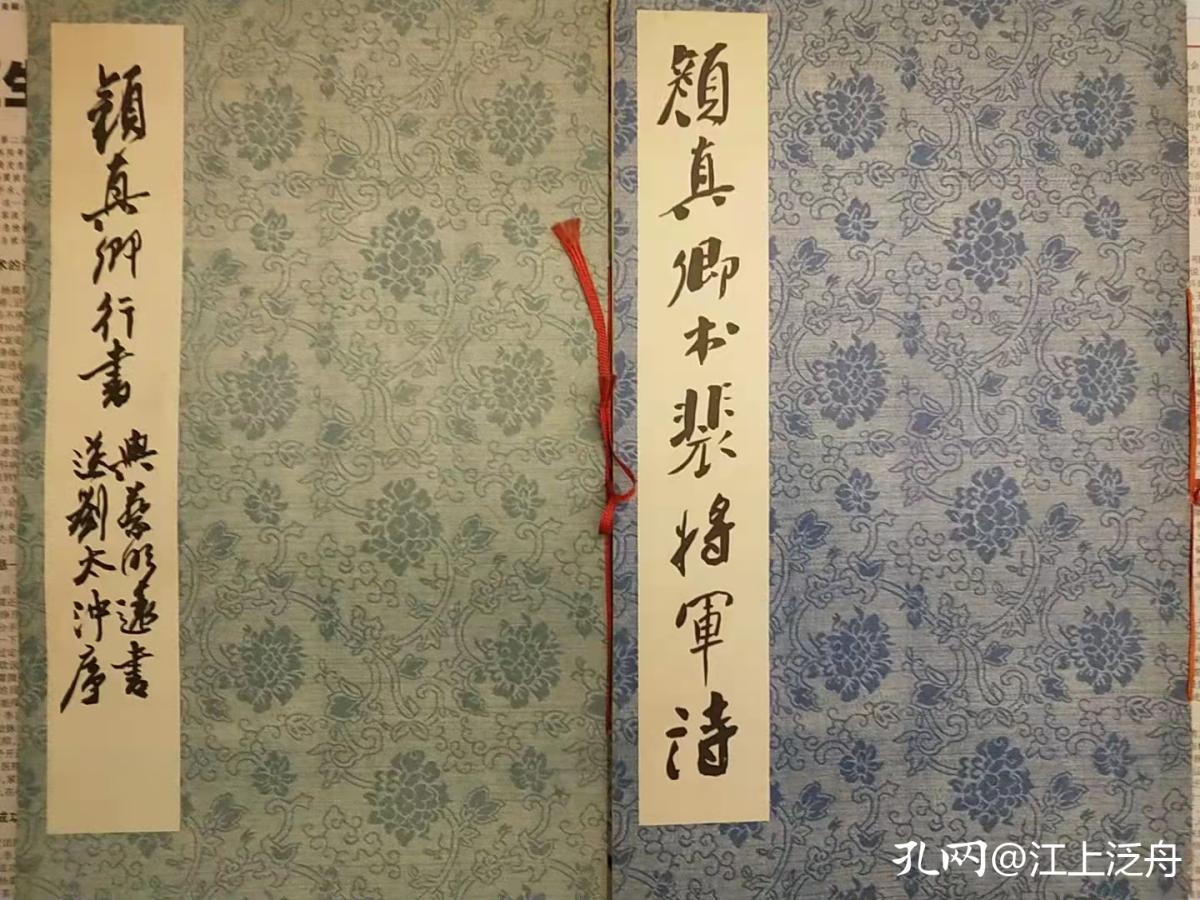 顏真卿行書
與蔡明遠書
送劉太沖序
顏真卿书裴将軍诗
孔网@江上泛舟